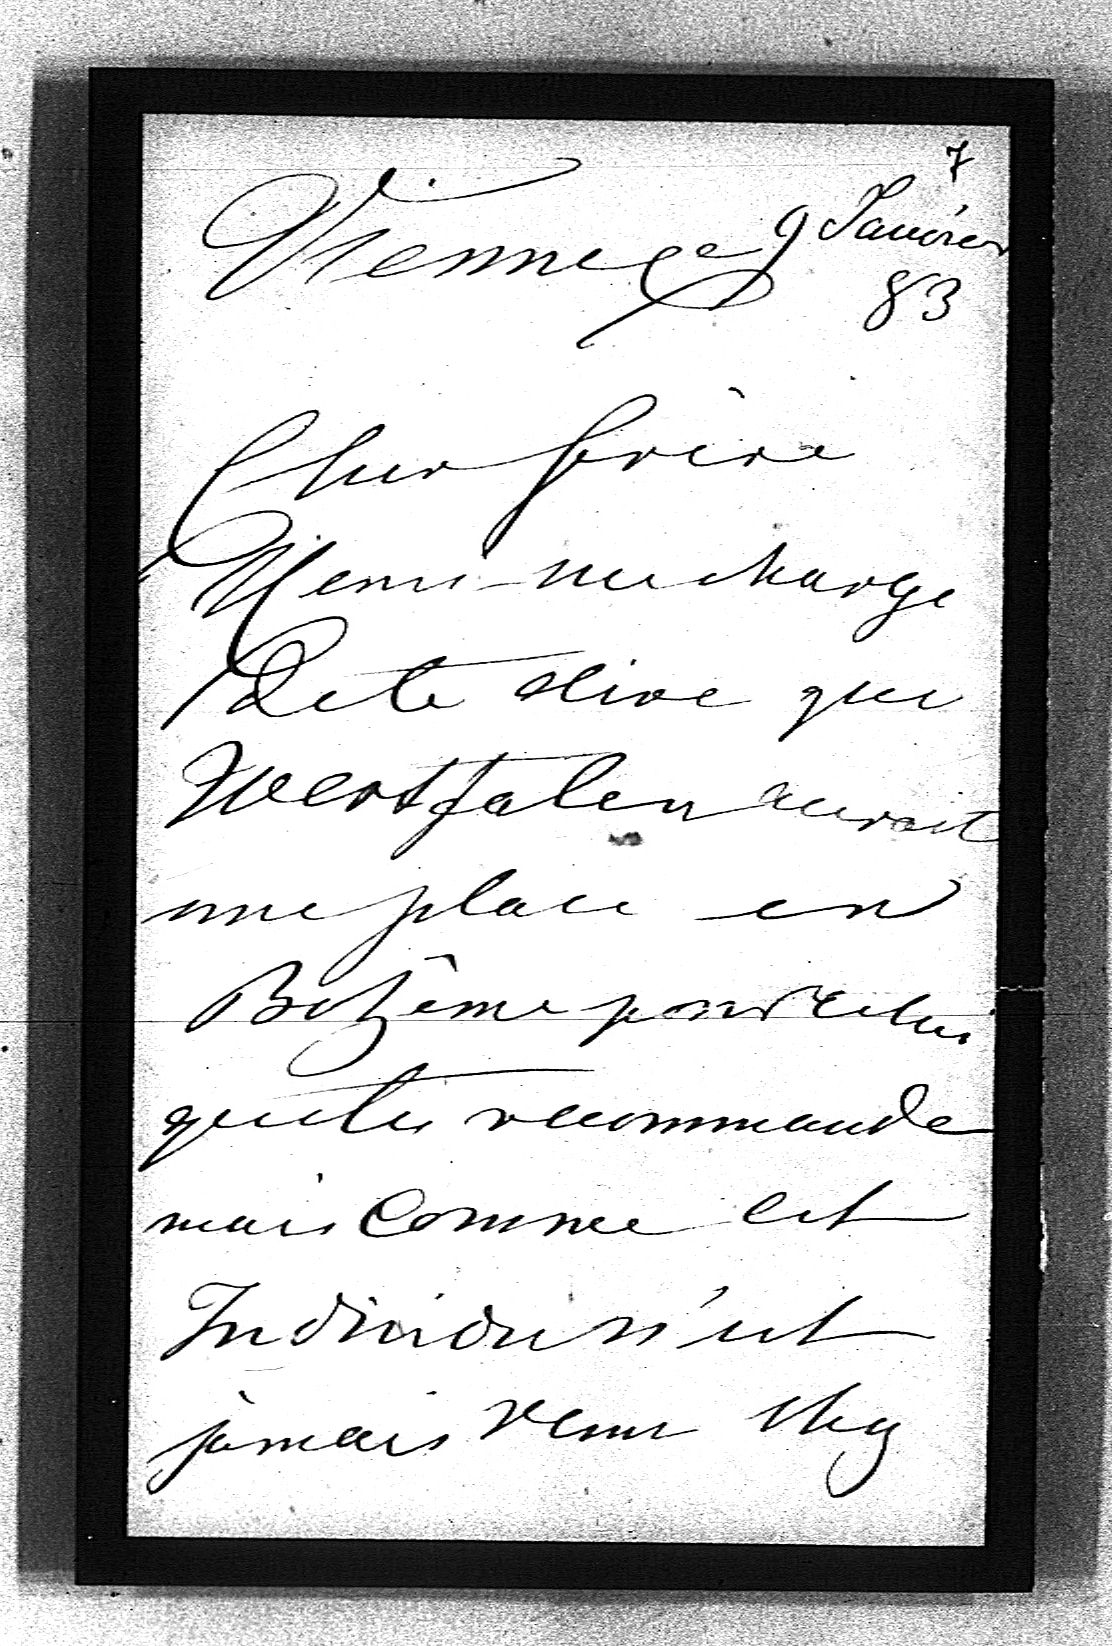 7
Vienne ce 9 Janvier
83
Cher frère
Henri me charge
de te dire que
Westfalen aurait
une place en
Bohême pour celui
que tu recommande
mais comme cet
Individu n'est
jamais venu chez